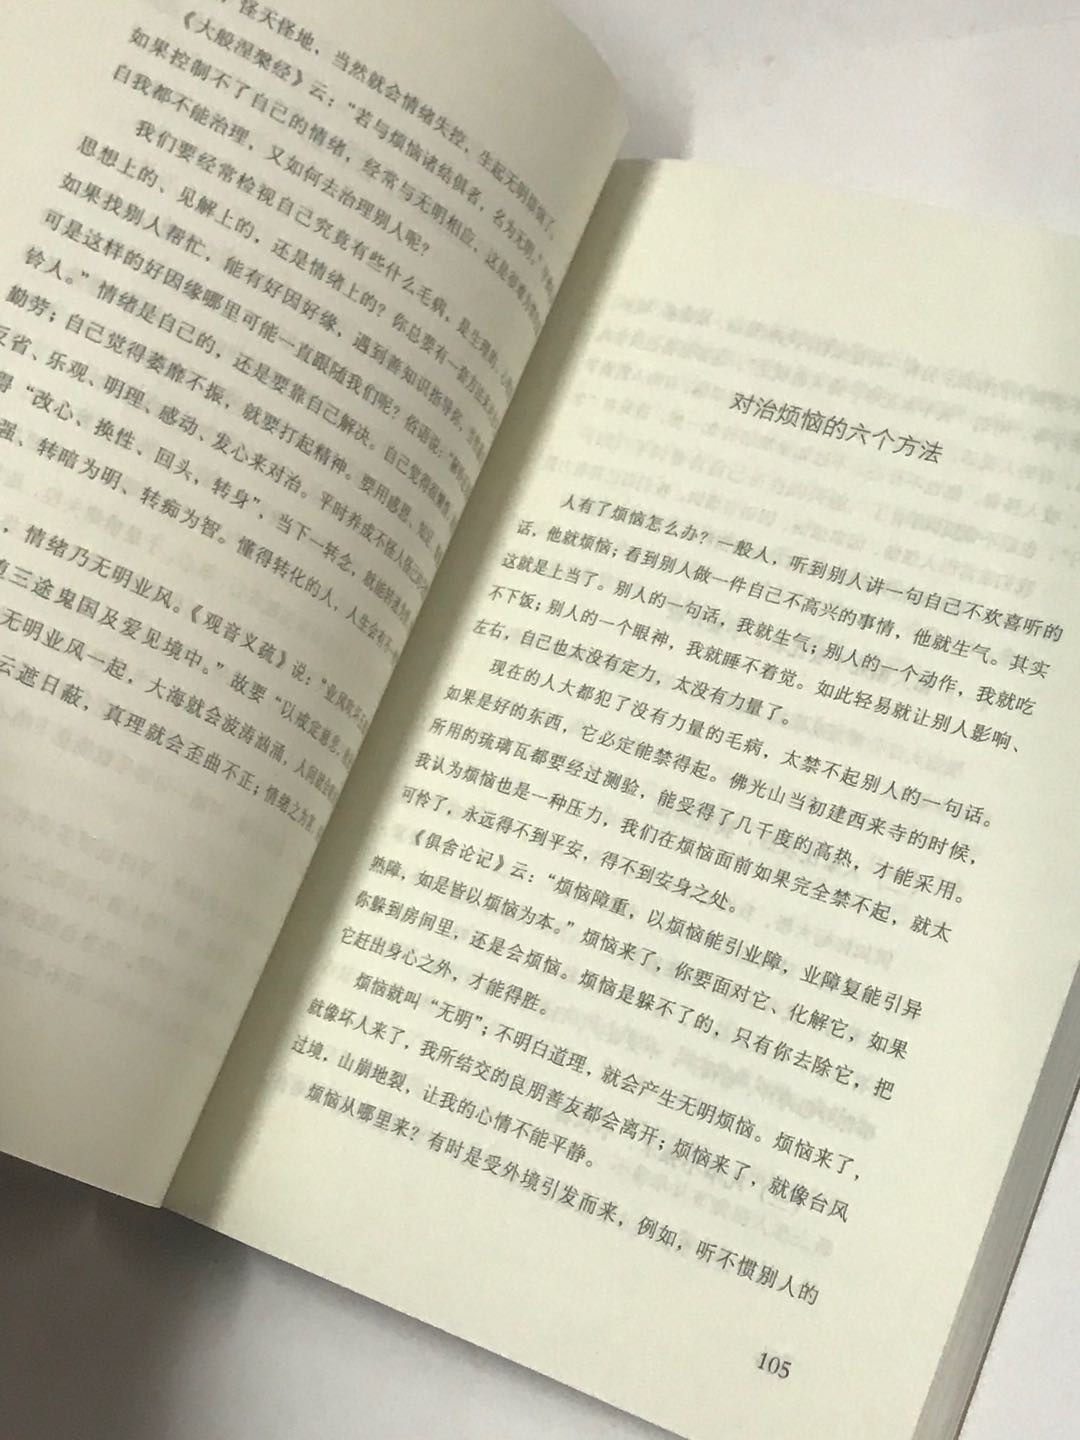 怪天怪地，当然就会情绪失控，生起无明烦恼了。
《大般涅槃经》云：“若与烦恼诸结俱者，名为无明。”
如果控制不了自己的情绪，经常与无明相应，这是很
自我都不能治理，又如何去治理别人呢？
我们要经常检视自己究竟有些什么毛病，是生理的、心
思想上的、见解上的，还是情绪上的？你总要有一套方法
如果找别人帮忙，能有好因好缘，遇到善知识指导你，当然
可是这样的好因缘哪里可能一直跟随我们呢？俗语说：
铃人。”情绪是自己的，还是要靠自己解决。自己觉得很
勤劳；自己觉得萎靡不振，就要打起精神。要用感恩、知足、
反省、乐观、明理、感动、发心来对治。平时养成不怪人
得“改心、换性、回头，转身”，当下一转念，就能转
强、转暗为明、转痴为智。懂得转化的人，人生会有不一
，情绪乃无明业风。《观音义疏》说：“业风吹坏
三途鬼国及爱见境中。”故要“以戒定
无明业风一起，大海就会波涛汹涌，人间就会
云遮日蔽，真理就会歪曲不正；情绪之为害，
对治烦恼的六个方法
人有了烦恼怎么办？一般人，听到别人讲一句自己不欢喜听的
话，他就烦恼；看到别人做一件自己不高兴的事情，他就生气。其实
这就是上当了。别人的一句话，我就生气；别人的一个动作，我就吃
不下饭；别人的一个眼神，我就睡不着觉。如此轻易就让别人影响、
左右，自己也太没有定力，太没有力量了。
现在的人大都犯了没有力量的毛病，太禁不起别人的一句话。
如果是好的东西，它必定能禁得起。佛光山当初建西来寺的时候，
所用的琉璃瓦都要经过测验，能受得了几千度的高热，才能采用。
我认为烦恼也是一种压力，我们在烦恼面前如果完全禁不起，就太
可怜了，永远得不到平安，得不到安身之处。
《俱舍论记》云：“烦恼障重，以烦恼能引业障，业障复能引异
熟障，如是皆以烦恼为本。”烦恼来了，你要面对它、化解它，如果
你躲到房间里，还是会烦恼。烦恼是躲不了的，只有你去除它，把
它赶出身心之外，才能得胜。
烦恼就叫“无明”；不明白道理，就会产生无明烦恼。烦恼来了，
就像坏人来了，我所结交的良朋善友都会离开；烦恼来了，就像台风
过境，山崩地裂，让我的心情不能平静。
烦恼从哪里来？有时是受外境引发而来，例如，听不惯别人的
105